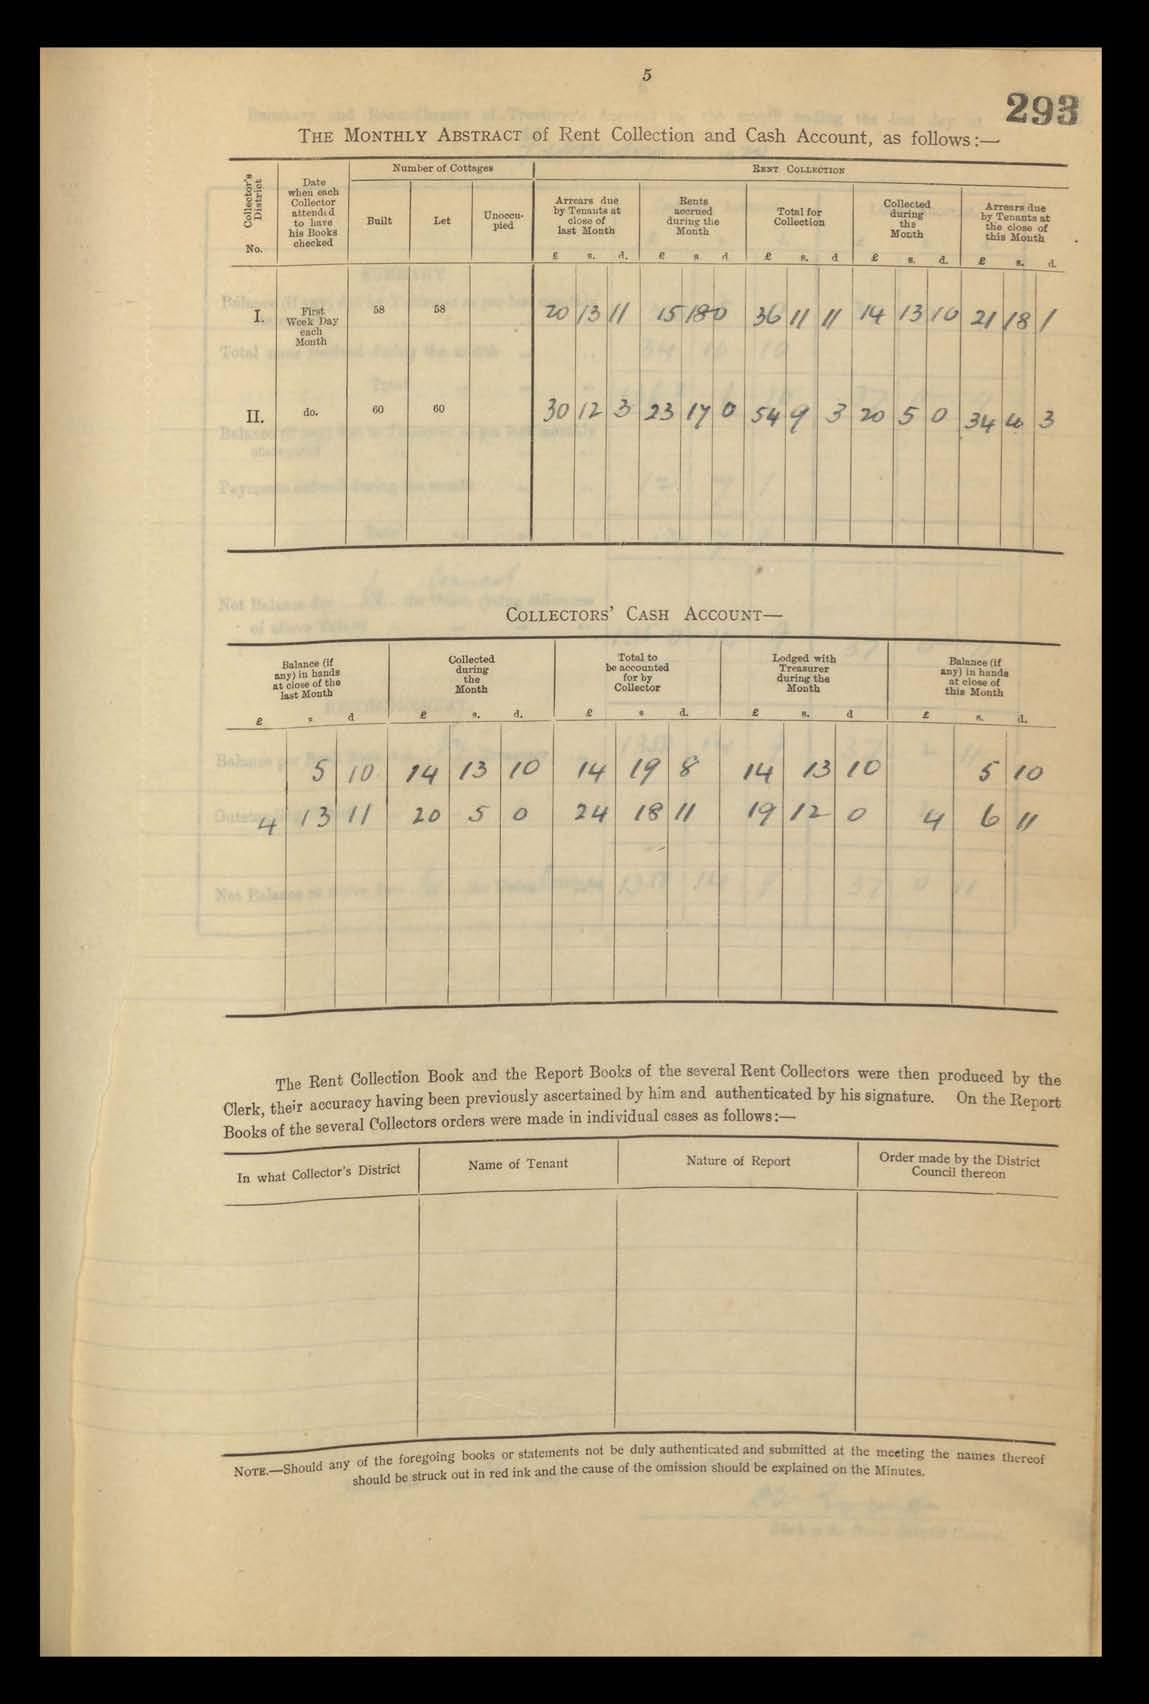 5
293
THE MONTHLY ABSTRACT of Rent Collection and Cash Account, as follows:—
Collector's District No.
Date when each Collector attended to have his Books checked
Number of Cottages
RENT COLLECTION
Built
Let
Unoccupied
Arrears due by Tenants at close of last Month
Rents accrued during the Month
Total for Collection
Collected during the Month
Arrears due by Tenants at the close of this Month
£ s. d. £ s. d. £ s. d £ s. d. £ s. d.
I. First Week Day each Month 58 58 20 13 11 15 18 0 36 11 11 14 13 10 21 18 1
II. do. 60 60 30 12 3 23 17 0 54 9 3 20 5 0 34 4 3
COLLECTORS' CASH ACCOUNT—
Balance (if any) in hands at close of the last Month
Collected during the Month
Total to be accounted for by Collector
Lodged with Treasurer during the Month
Balance (if any) in hands at close of this Month
£ s d £ s. d. £ s d. £ s. d £ s. d.
5 10 14 13 10 14 19 8 14 13 10 5 10
4 13 11 20 5 0 24 18 11 19 12 0 4 6 11
The Rent Collection Book and the Report Books of the several Rent Collectors were then produced by the
Clerk, their accuracy having been previously ascertained by him and authenticated by his signature. On the Report
Books of the several Collectors orders were made in individual cases as follows:—
In what Collector's District
Name of Tenant
Nature of Report
Order made by the District Council thereon
NOTE.—Should any of the foregoing books or statements not be duly authenticated and submitted at the meeting the names thereof
should be struck out in red ink and the cause of the omission should be explained on the Minutes.